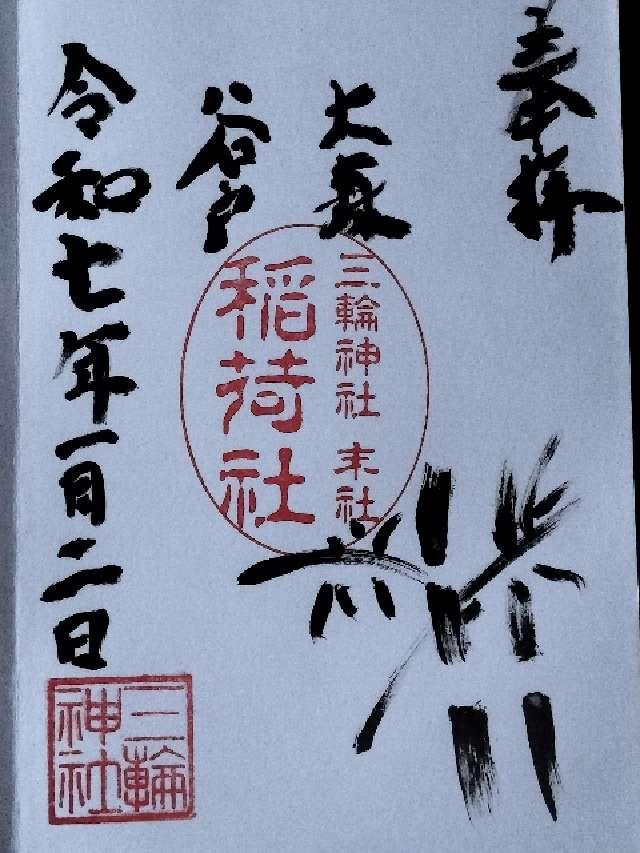 奉拝
大
谷戸
三輪神社 末社
稲荷社
令和七年一月二日
三輪
神社